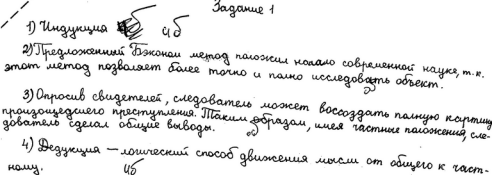 Задание 1
1) Индукция 4б
2) Предложенный Бэконом метод положил начало современной науке, т.к.
этот метод позволяет более точно и полно исследовать объект.
3) Опросив свидетелей, следователь может воссоздать полную картину
произошедшего преступления. Таким образом, имея частные положения, сле-
дователь сделал общие выводы.
4) Дедукция – логический способ движения мысли от общего к част-
ному. 4б